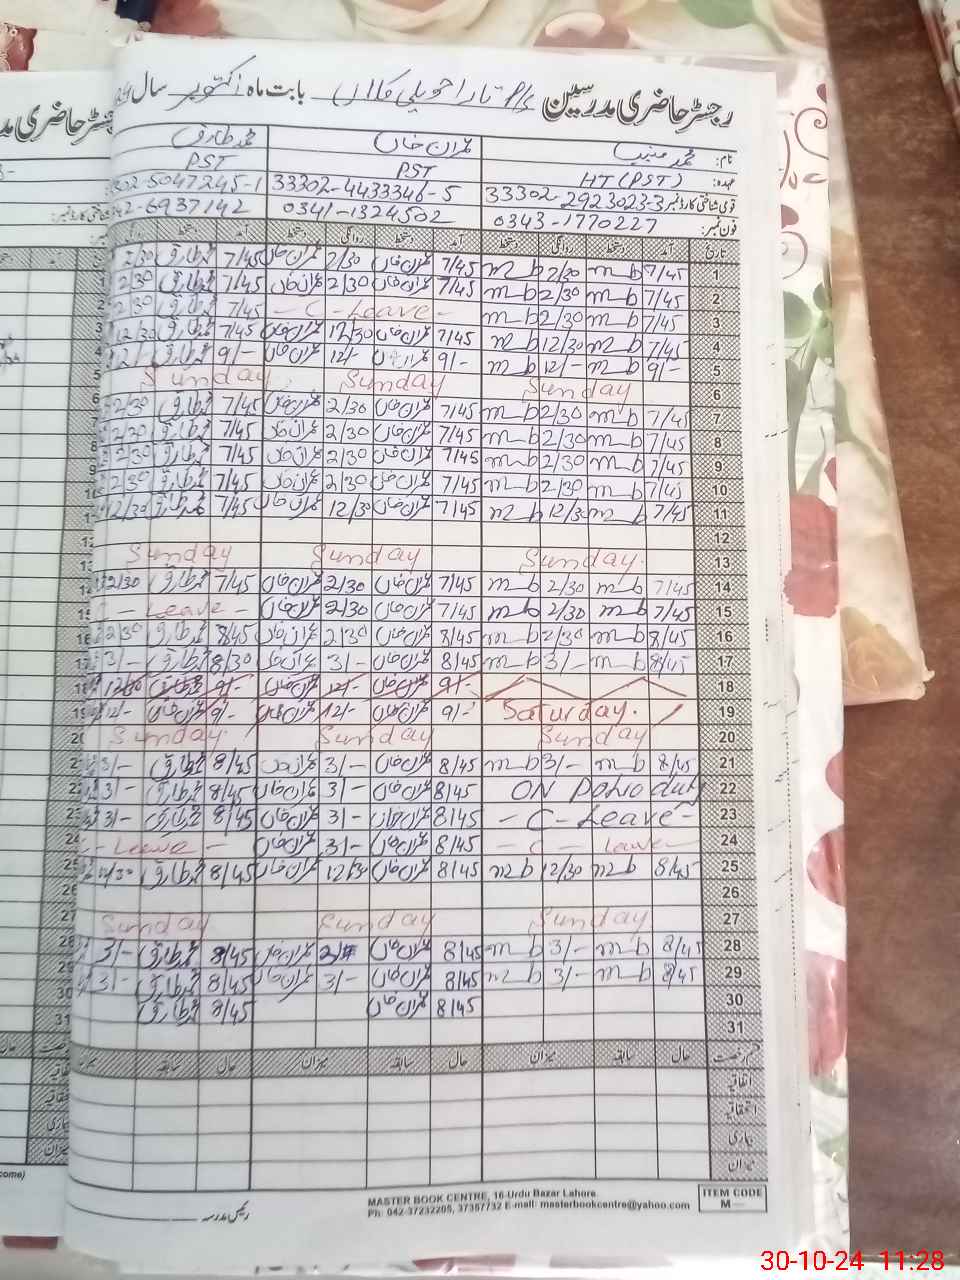 رجسٹر حاضری مدرسین P/S تارا حویلی کلاں بابت ماہ اکتوبر سال
نام: محمد منیب عمران خان محمد طارق
عہدہ: HT (PST) PST PST
قومی شناختی کارڈ نمبر 33302-2923023-3 33302-4433346-5 302-5047245-1
فون نمبر: 0343-1770227 0341-1324502 42-6937142
تاریخ آمد دستخط روانگی دستخط آمد دستخط روانگی دستخط آمد دستخط روانگی
1 7/45 m b 2/30 m b 7/45 عمران خان 2/30 عمران خان 7/45 طارق 2/30
2 7/45 m b 2/30 m b 7/45 عمران خان 2/30 عمران خان 7/45 طارق 2/30
3 7/45 m b 2/30 m b - C - Leave - 7/45 طارق 2/30
4 7/45 m b 12/30 m b 7/45 عمران خان 12/30 عمران خان 7/45 طارق 12/30
5 9/- m b 12/- m b 9/- عمران خان 12/- عمران خان 9/- طارق 12/-
6 Sunday Sunday Sunday
7 7/45 m b 2/30 m b 7/45 عمران خان 2/30 عمران خان 7/45 طارق 2/30
8 7/45 m b 2/30 m b 7/45 عمران خان 2/30 عمران خان 7/45 طارق 2/30
9 7/45 m b 2/30 m b 7/45 عمران خان 2/30 عمران خان 7/45 طارق 2/30
10 7/45 m b 2/30 m b 7/45 عمران خان 2/30 عمران خان 7/45 طارق 2/30
11 7/45 m b 12/30 m b 7/45 عمران خان 12/30 عمران خان 7/45 طارق 12/30
12
13 Sunday Sunday Sunday
14 7/45 m b 2/30 m b 7/45 عمران خان 2/30 عمران خان 7/45 طارق 2/30
15 7/45 m b 2/30 m b 7/45 عمران خان 2/30 عمران خان - Leave -
16 8/45 m b 2/30 m b 8/45 عمران خان 2/30 عمران خان 8/45 طارق 2/30
17 8/45 m b 3/- m b 8/45 عمران خان 3/- عمران خان 8/30 طارق 3/-
18 9/- عمران خان 12/- عمران خان 9/- طارق
19 Saturday. 9/- عمران خان 12/- عمران خان 9/- 12/-
20 Sunday Sunday Sunday
21 8/45 m b 3/- m b 8/45 عمران خان 3/- عمران خان 8/45 طارق 3/-
22 ON Polio duty 8/45 عمران خان 3/- عمران خان 8/45 طارق 3/-
23 - C - Leave - 8/45 عمران خان 3/- عمران خان 8/45 طارق 3/-
24 - C - Leave - 8/45 عمران خان 3/- عمران خان - Leave -
25 8/45 m b 12/30 m b 8/45 عمران خان 12/30 عمران خان 8/45 طارق 12/30
26
27 Sunday Sunday Sunday
28 8/45 m b 3/- m b 8/45 عمران خان عمران خان 8/45 طارق 3/-
29 8/45 m b 3/- m b 8/45 عمران خان 3/- عمران خان 8/45 طارق 3/-
30 8/45 عمران خان 8/45 طارق
31
قسم رخصت حال سابقہ میزان حال سابقہ میزان حال سابقہ
اتفاقیہ
استحقاقیہ
بیماری
میزان
رئیس مدرسہ
MASTER BOOK CENTRE, 16-Urdu Bazar Lahore.
Ph: 042-37232205, 37357732 E-mail: masterbookcentre@yahoo.com
ITEM CODE
M—
30-10-24 11:28